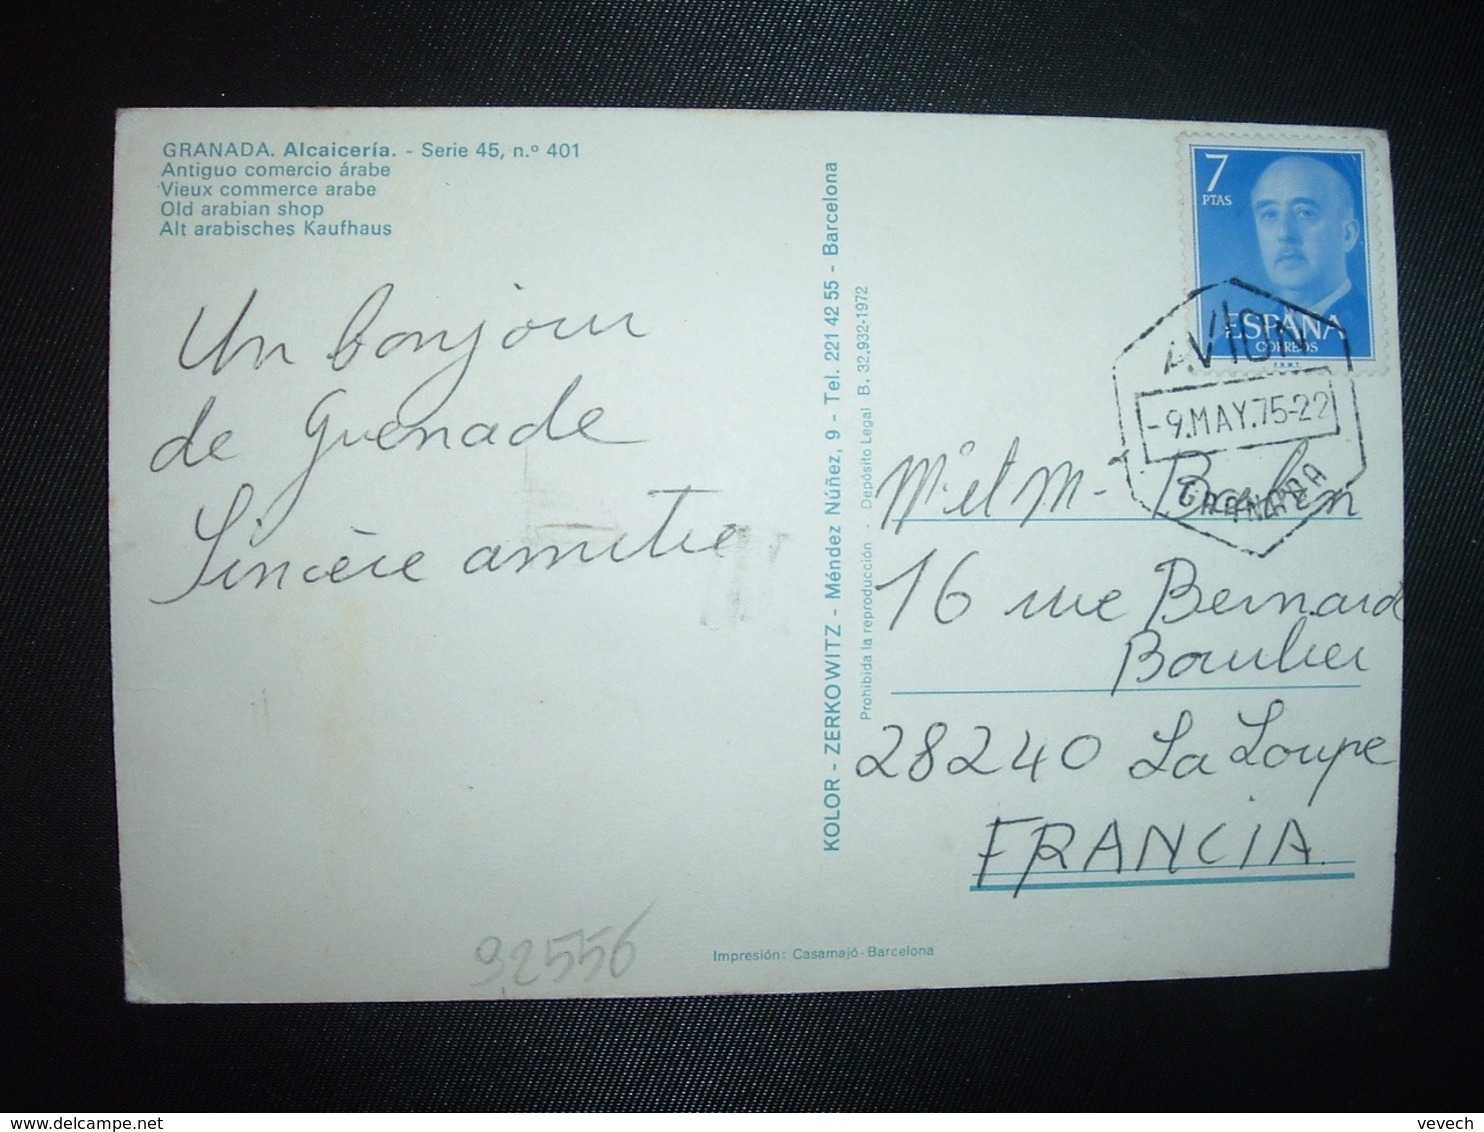 GRANADA. Alcaicería. - Serie 45, n.º 401
Antiguo comercio árabe
Vieux commerce arabe
Old arabian shop
Alt arabisches Kaufhaus
Un bonjour
de Grenade
Sincère amitié
KOLOR - ZERKOWITZ - Méndez Núñez, 9 - Tel. 221 42 55 - Barcelona
Prohibida la reproducción - Depósito Legal B. 32.932-1972
7
PTAS
ESPAÑA
CORREOS
F.N.M.T.
AVION
-9.MAY.75-22
GRANADA
16 rue Bernard
28240 La Loupe
FRANCIA.
92556
Impresión: Casamajó-Barcelona
delcampe.net
vevech